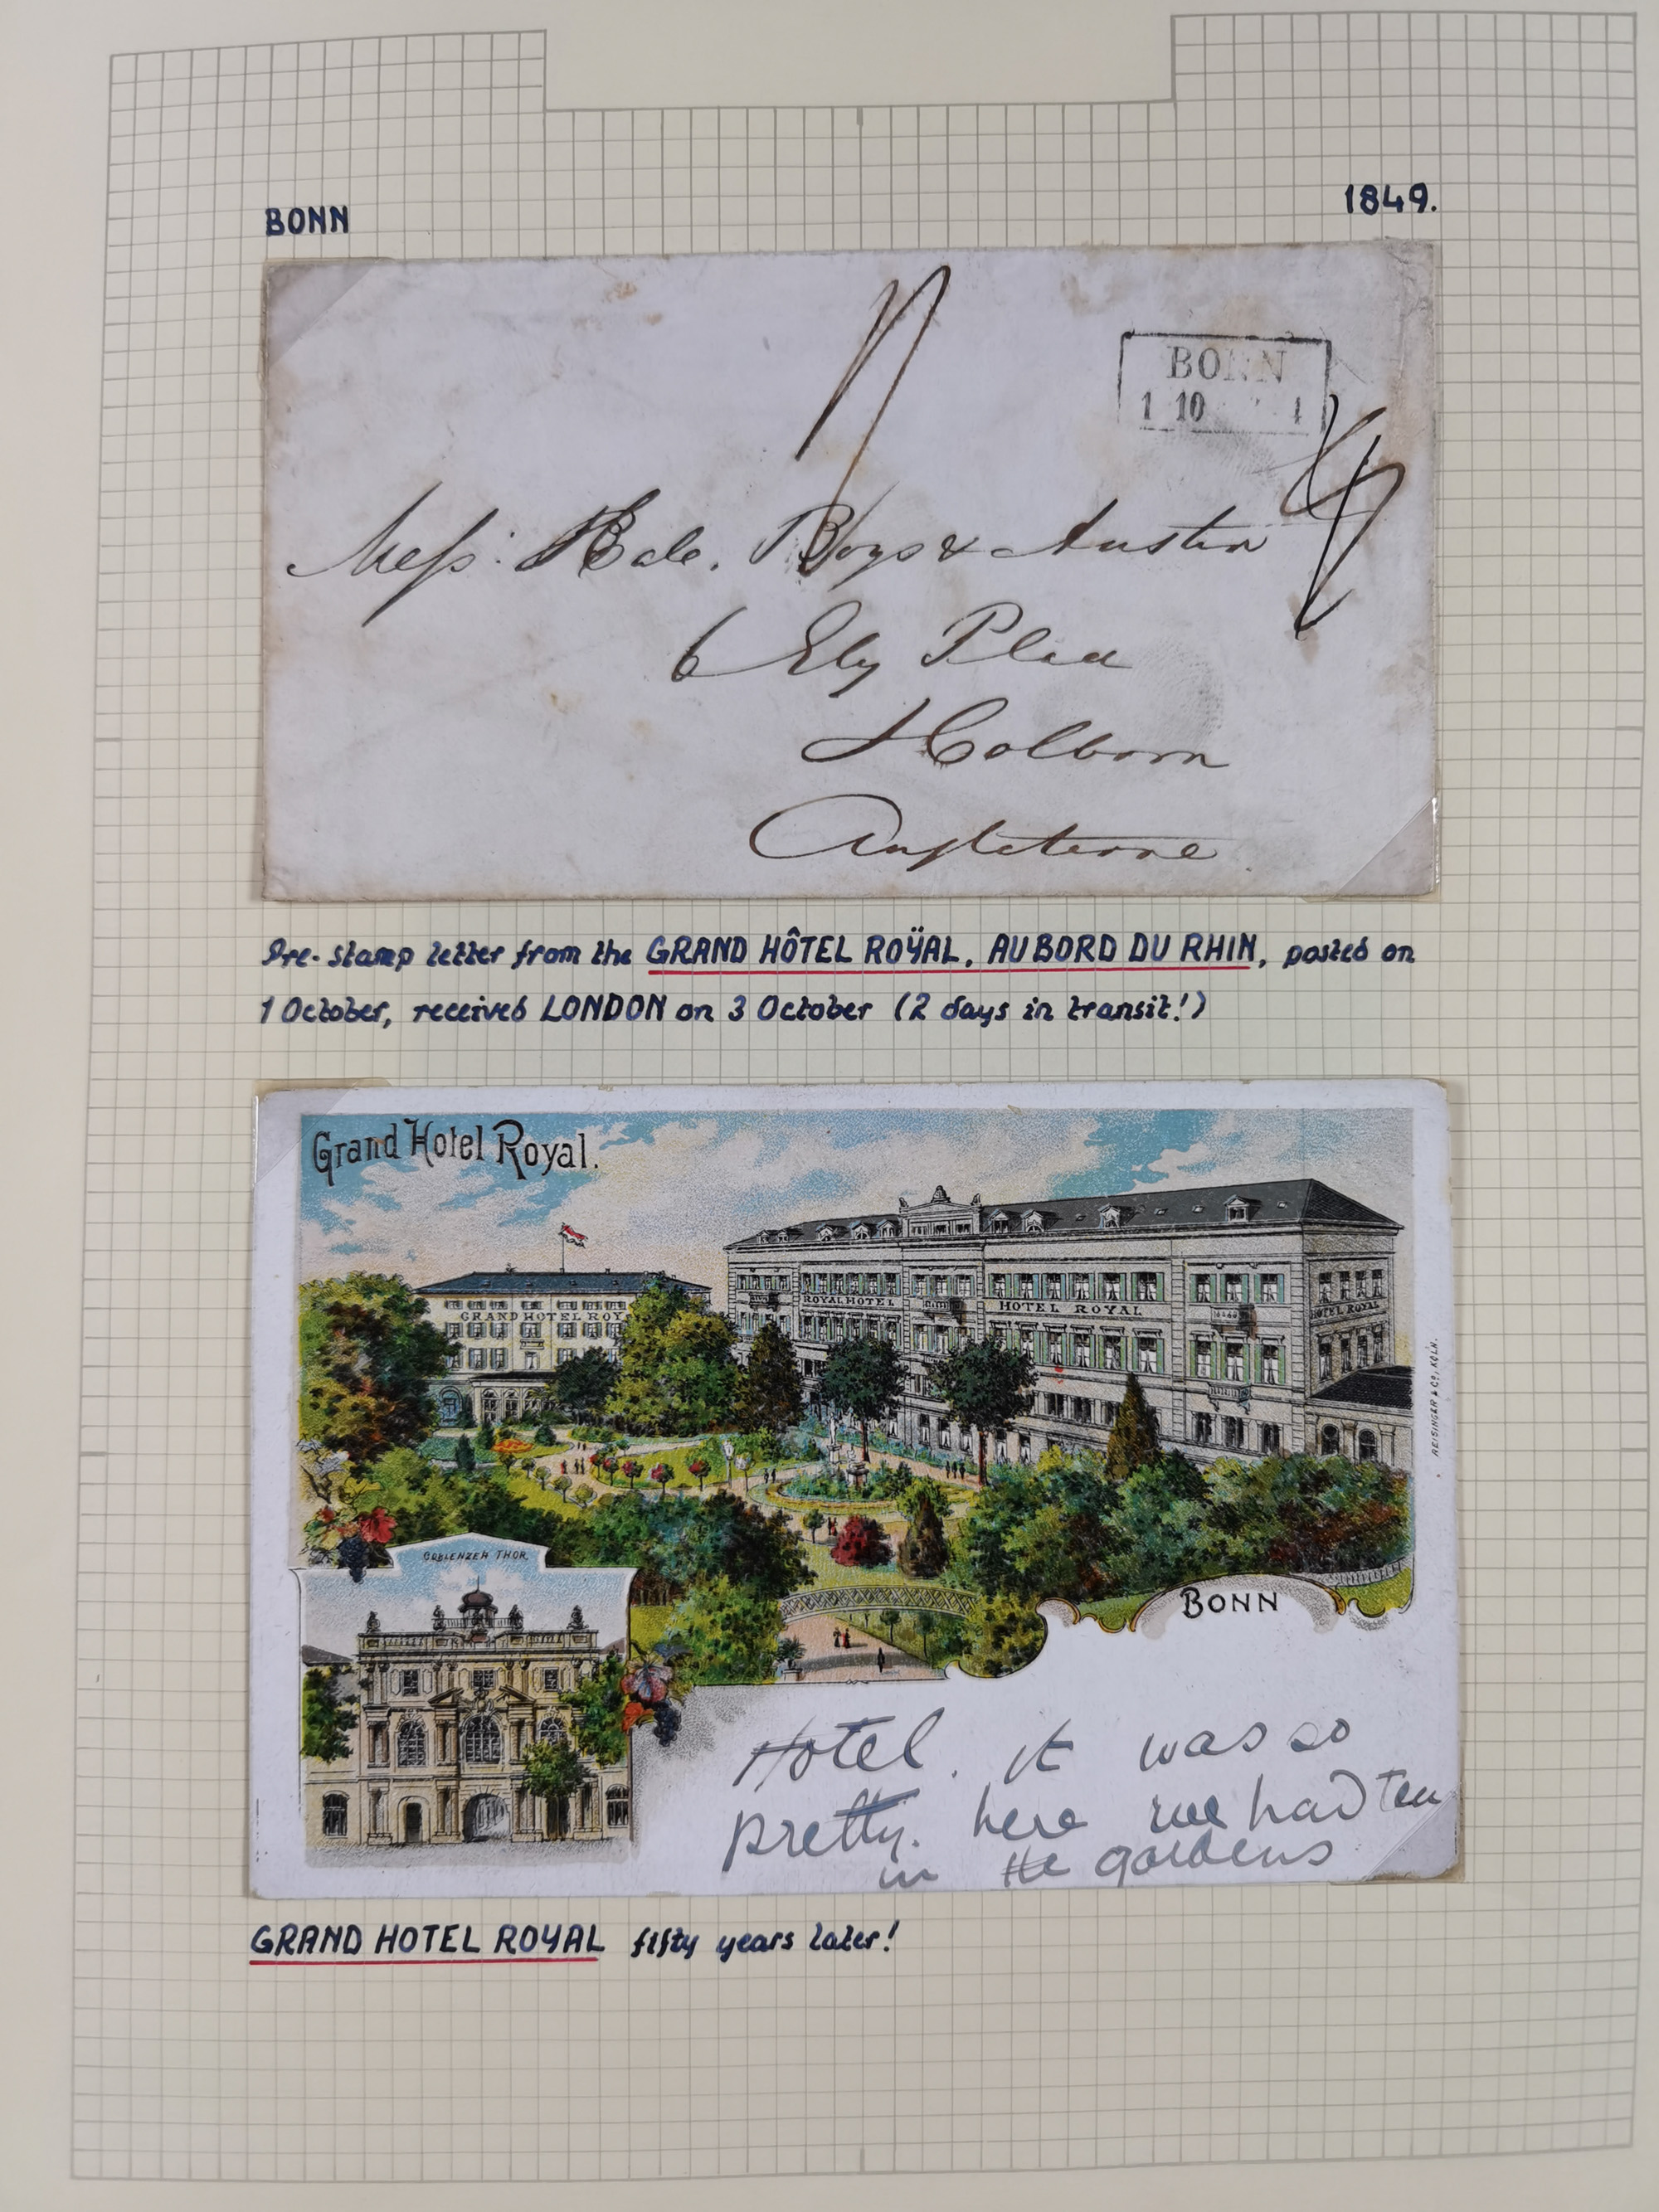 BONN
1849.
BONN
1 10 1
Mess: Bale, Boys & Austin
6 Ely Place
Holborn
Angleterre
Pre-stamp letter from the GRAND HÔTEL ROŸAL, AU BORD DU RHIN, posted on
1 October, received LONDON on 3 October (2 days in transit!)
Grand Hotel Royal.
GRAND HOTEL ROY
ROYAL HOTEL
HOTEL ROYAL
HOTEL ROYAL
REISINGER & CO, KÖLN.
COBLENZER THOR.
BONN
Hotel. it was so
pretty. here we had tea
in the gardens
GRAND HOTEL ROYAL fifty years later!